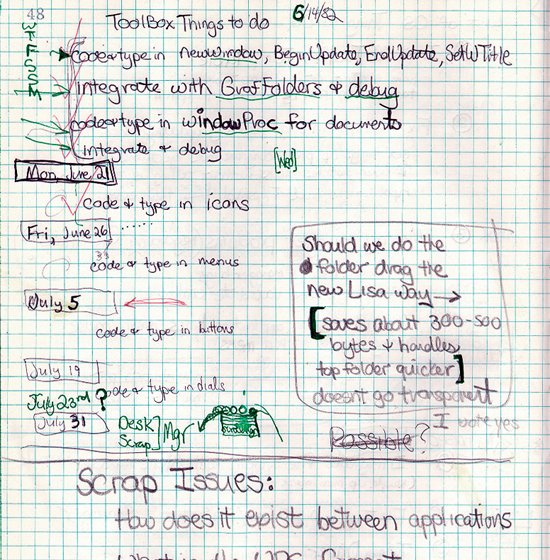 48
ToolBox Things to do 6/14/82
W
T
F
S
S
M
code & type in newwindow, BeginUpdate, EndUpdate, SetWTitle
integrate with GrafFolders & debug
code & type in windowProc for documents
integrate & debug [Wed]
Mon, June 21
code & type in icons
Fri, June 26 ......
code & type in menus
July 5
code & type in buttons
July 19
code & type in dials
July 23rd ?
July 31
Desk
Scrap] Mgr
Should we do the
folder drag the
new Lisa way →
[saves about 300-500
bytes & handles
top folder quicker]
doesn't go transparent
I vote yes
Possible?
Scrap Issues:
How does it exist between applications